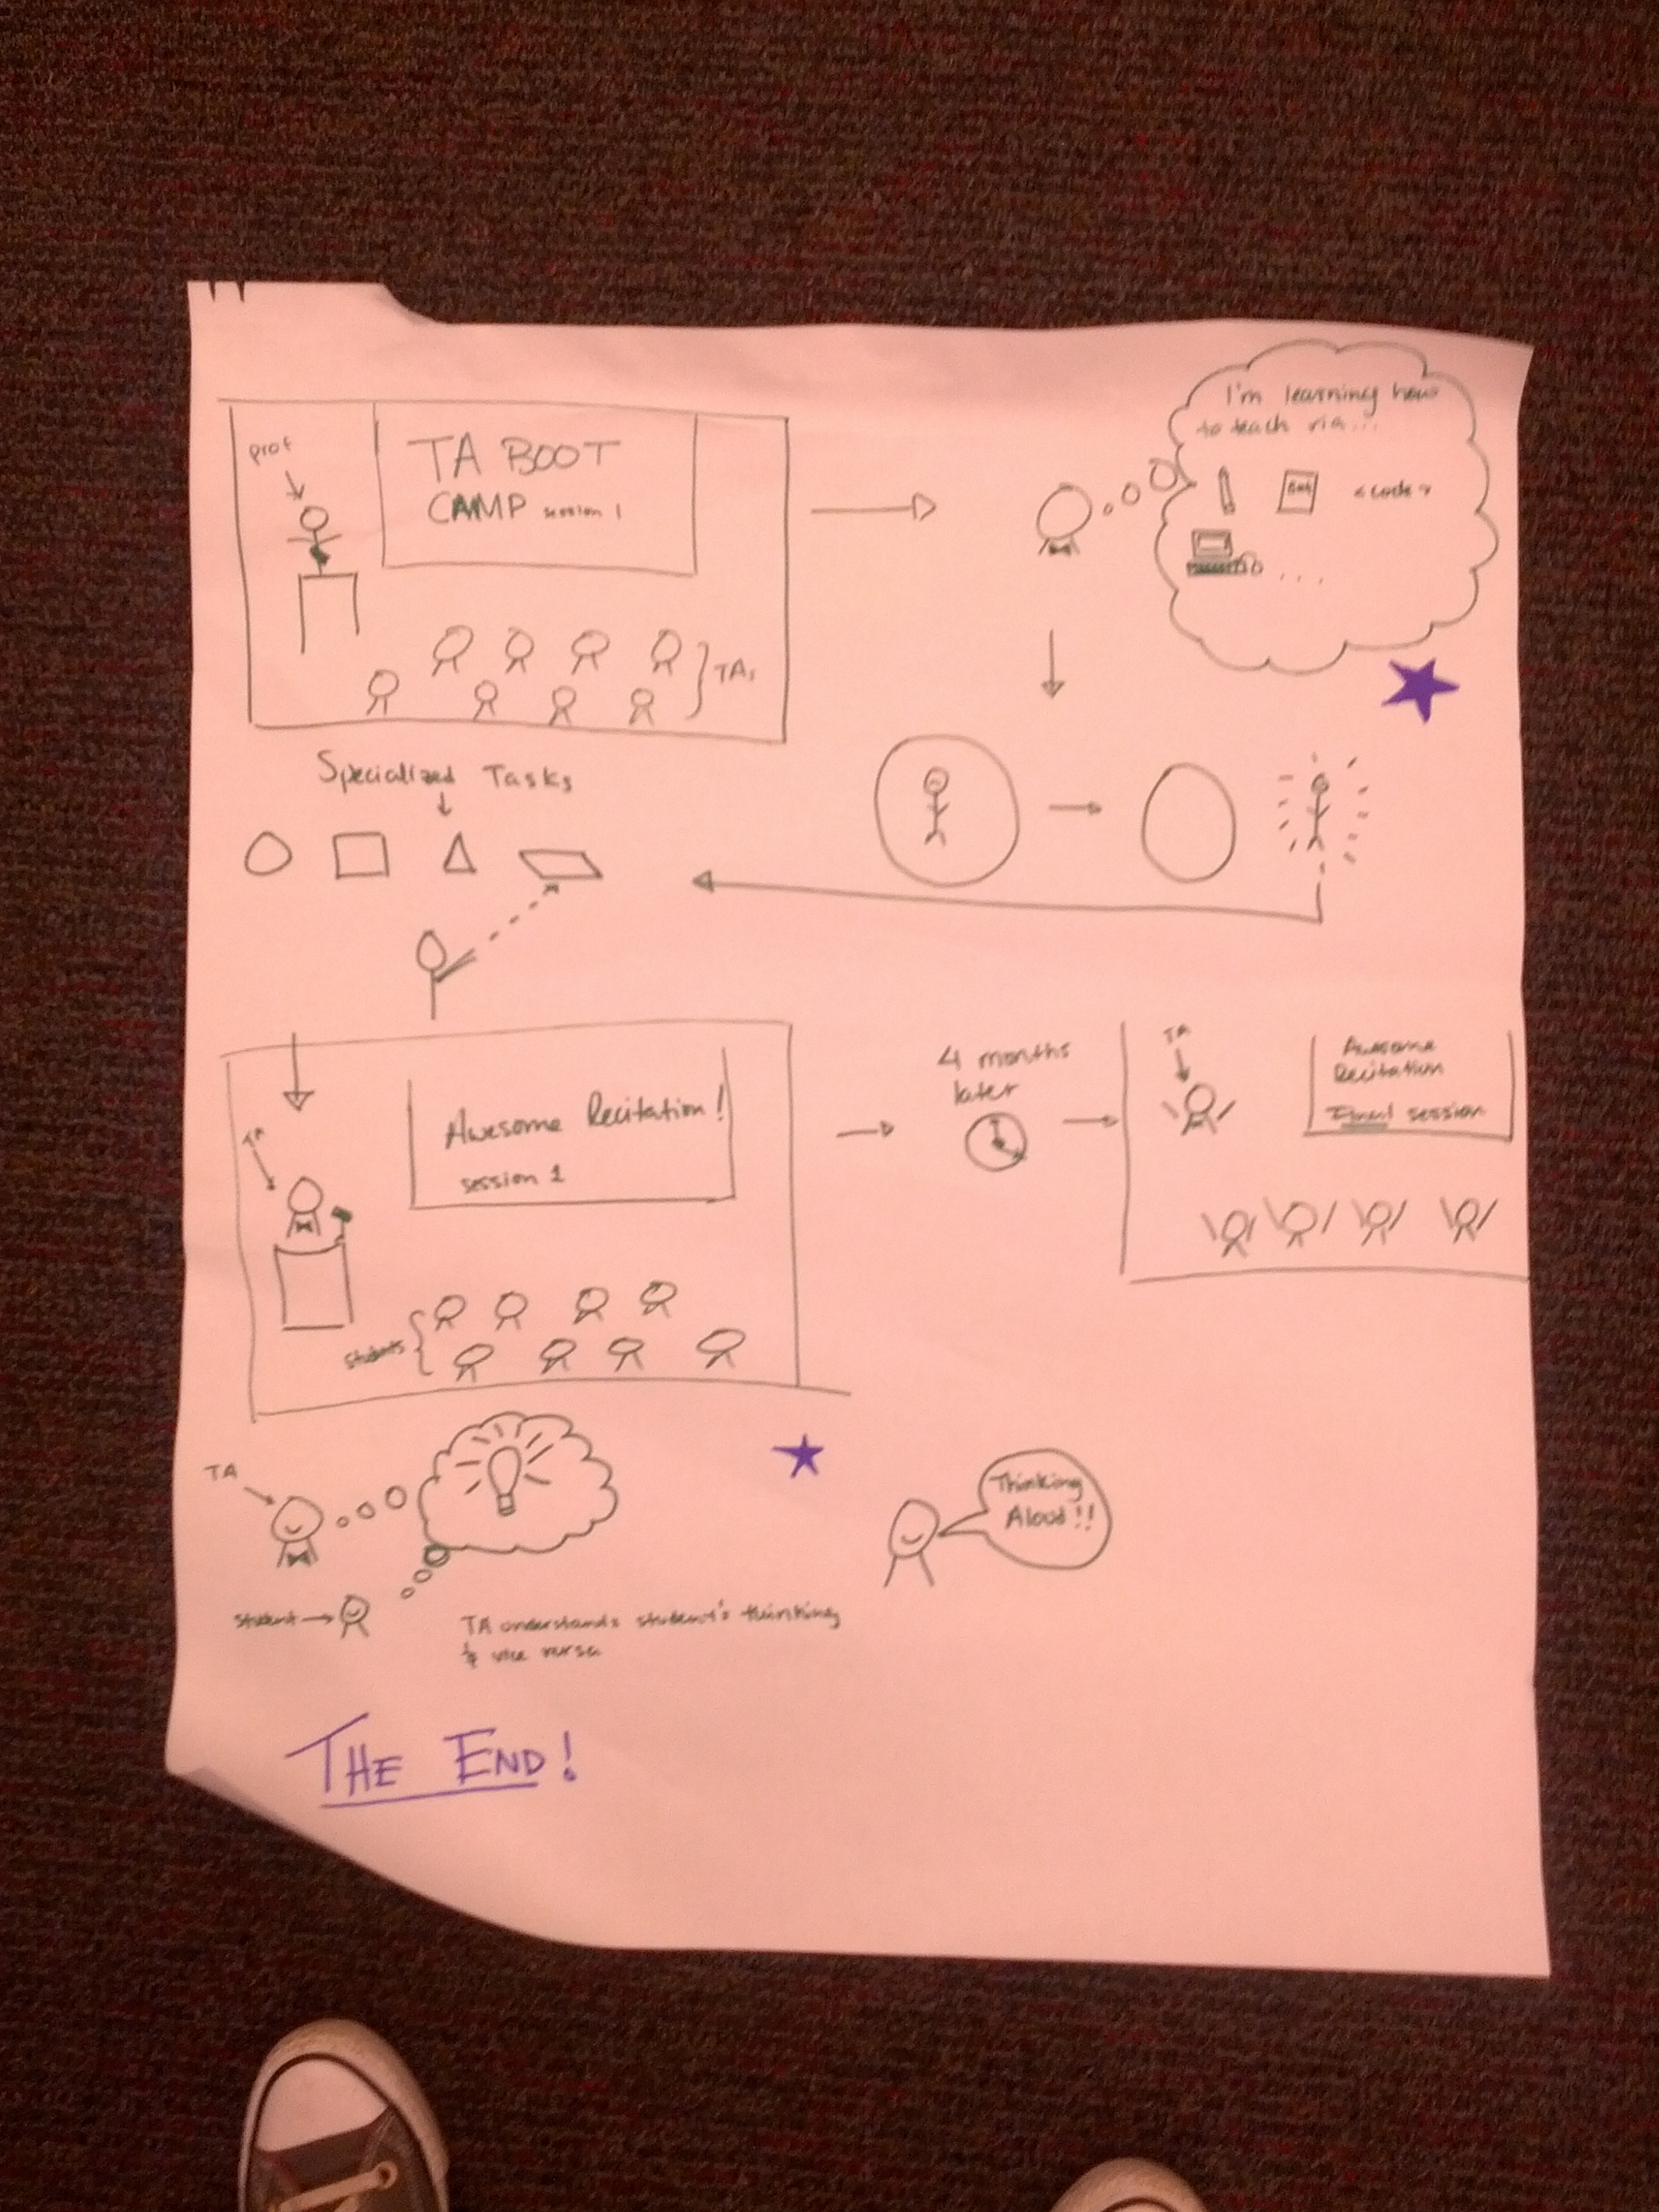 prof
TA BOOT
CAMP session 1
TAs
I'm learning how
to teach via...
Book
<code>
...
Specialized Tasks
TA
Awesome Recitation!
session 1
students
4 months
later
TA
Awesome
Recitation
Final session
TA
student
TA understands student's thinking
& vice versa
Thinking
Aloud!!
THE END!